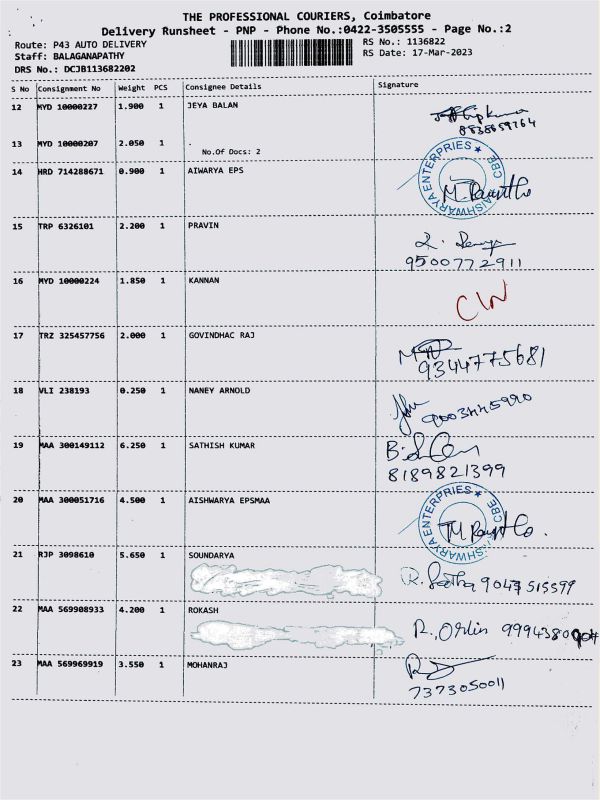 THE PROFESSIONAL COURIERS, Coimbatore
Delivery Runsheet - PNP - Phone No.:0422-3505555 - Page No.:2
Route: P43 AUTO DELIVERY RS No.: 1136822
Staff: BALAGANAPATHY RS Date: 17-Mar-2023
DRS No.: DCJB113682202
S No Consignment No Weight PCS Consignee Details Signature
12 MYD 10000227 1.900 1 JEYA BALAN
8838659764
13 MYD 10000207 2.050 1 .
No.Of Docs: 2
14 HRD 714288671 0.900 1 AIWARYA EPS
AISHWARYA ENTERPRIES ★ CBE
15 TRP 6326101 2.200 1 PRAVIN
9500772911
16 MYD 10000224 1.850 1 KANNAN
17 TRZ 325457756 2.000 1 GOVINDHAC RAJ
9344775681
18 VLI 238193 0.250 1 NANEY ARNOLD
9003445990
19 MAA 300149112 6.250 1 SATHISH KUMAR
8189821399
20 MAA 300051716 4.500 1 AISHWARYA EPSMAA
AISHWARYA ENTERPRIES ★ CBE
21 RJP 3098610 5.650 1 SOUNDARYA
R. 9047515599
22 MAA 569908933 4.200 1 ROKASH
R.
23 MAA 569969919 3.550 1 MOHANRAJ
7373050011